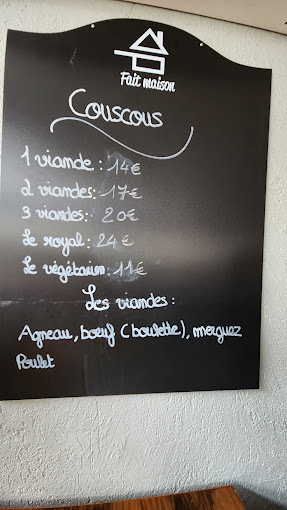 Fait maison
Couscous
1 viande : 14€
2 viandes : 17€
3 viandes : 20€
Le royal : 24€
Le végétarien : 11€
Les viandes :
Agneau, bœuf (boulette), merguez
Poulet